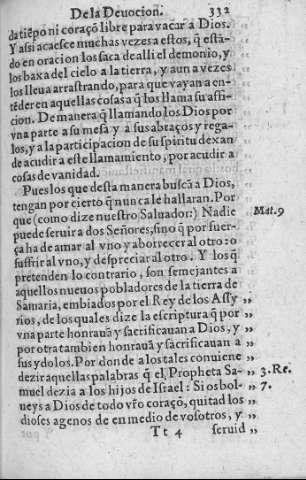 De la Deuocion. 332
datiẽpo ni coraçõ libre para vacar a Dios.
Y assi acaesce muchas vezes a estos, q̃ està-
do en oracion los saca de alli el demonio, y
los baxa del cielo a la tierra, y aun a vezes
los lleua arrastrando, para que vayan a en-
tẽder en aquellas cosas a q̃ los llama su affi-
cion. De manera q̃ llamando los Dios por
vna parte a su mesa y à sus abraços y rega-
los, y a la participacion de su spiritu dexan
de acudir a este llamamiento, por acudir a
cosas de vanidad.
Pues los que desta manera buscã a Dios,
tengan por cierto q̃ nunca le hallaran. Por
que (como dize nuestro Saluador:) Nadie Mat.9
puede seruir a dos Señores, sino q̃ por fuer-
ça ha de amar al vno y aborrecer al otro: o
suffrir al vno, y despreciar al otro. Y los q̃
pretenden lo contrario, son semejantes a
aquellos nueuos pobladores de la tierra de
Samaria, embiados por el Rey de los Assy „
rios, de los quales dize la escriptura q̃ por „
vna parte honrauã y sacrificauan a Dios, y „
por otra tambien honrauã y sacrificauan a „
sus ydolos. Por donde a los tales conuiene „
dezir aquellas palabras q̃ el Propheta Sa- 3.Re.
muel dezia a los hijos de Israel: Si os bol- 7.
ueys a Dios de todo vr̃o coraçõ, quitad los „
dioses agenos de en medio de vosotros, y „
Tt 4 seruid „